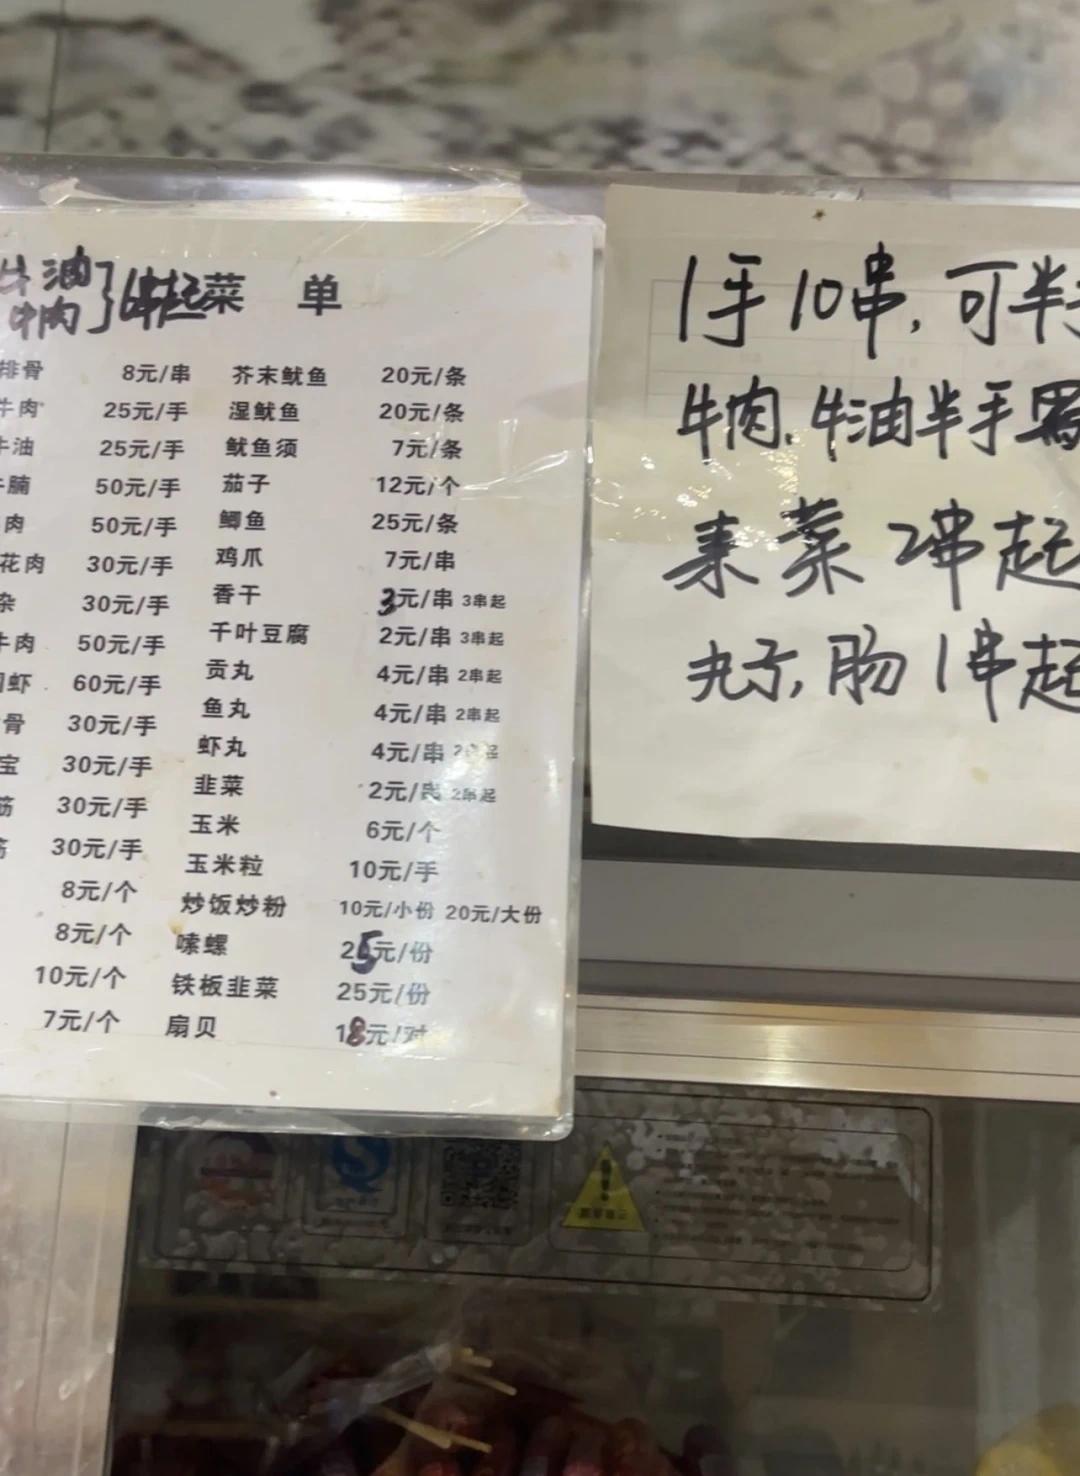 牛油
牛肉 } 6串起
菜 单
排骨 8元/串 芥末鱿鱼 20元/条
牛肉 25元/手 湿鱿鱼 20元/条
牛油 25元/手 鱿鱼须 7元/条
腩 50元/手 茄子 12元/个
肉 50元/手 鲫鱼 25元/条
花肉 30元/手 鸡爪 7元/串
杂 30元/手 香干 3元/串 3串起
牛肉 50元/手 千叶豆腐 2元/串 3串起
虾 60元/手 贡丸 4元/串 2串起
骨 30元/手 鱼丸 4元/串 2串起
宝 30元/手 虾丸 4元/串 2串起
筋 30元/手 韭菜 2元/串 2串起
筋 30元/手 玉米 6元/个
8元/个 玉米粒 10元/手
8元/个 炒饭炒粉 10元/小份 20元/大份
10元/个 嗦螺 25元/份
7元/个 铁板韭菜 25元/份
扇贝 18元/对
1手10串,可半手
牛肉.牛油半手
素菜 2串起
丸子,肠 1串起